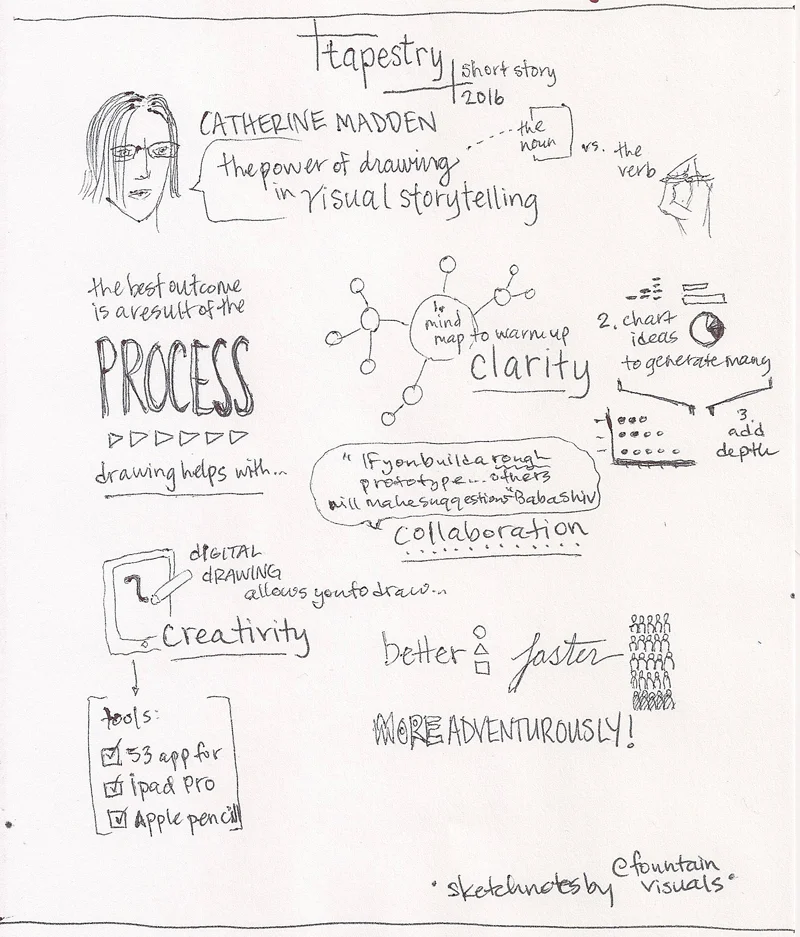 tapestry
short story
2016
CATHERINE MADDEN
the power of drawing
in visual storytelling
the
noun
vs.
the
verb
the best outcome
is a result of the
PROCESS
drawing helps with...
1.
mind
map to warm up
clarity
2. chart
ideas
to generate many
3.
add
depth
"If you build a rough
prototype... others
will make suggestions" Baba Shiv
collaboration
DIGITAL
DRAWING
allows you to draw...
creativity
better
faster
MORE ADVENTUROUSLY!
tools:
53 app for
ipad Pro
Apple pencil
sketchnotes by
@fountain
visuals